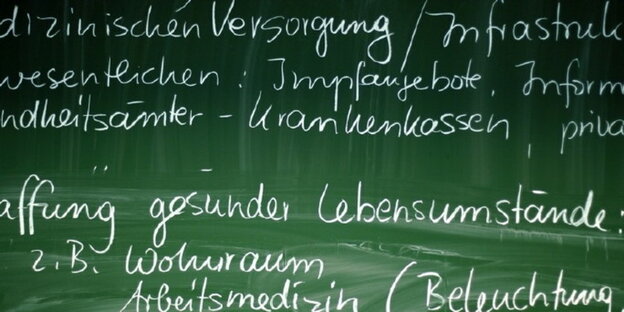 dizinischen Versorgung / Infrastruk
wesentlichen : Impfangebote, Inform
ndheitsämter - Krankenkassen, priva
affung gesunder Lebensumstände:
z.B. Wohnraum
Arbeitsmedizin (Beleuchtung,